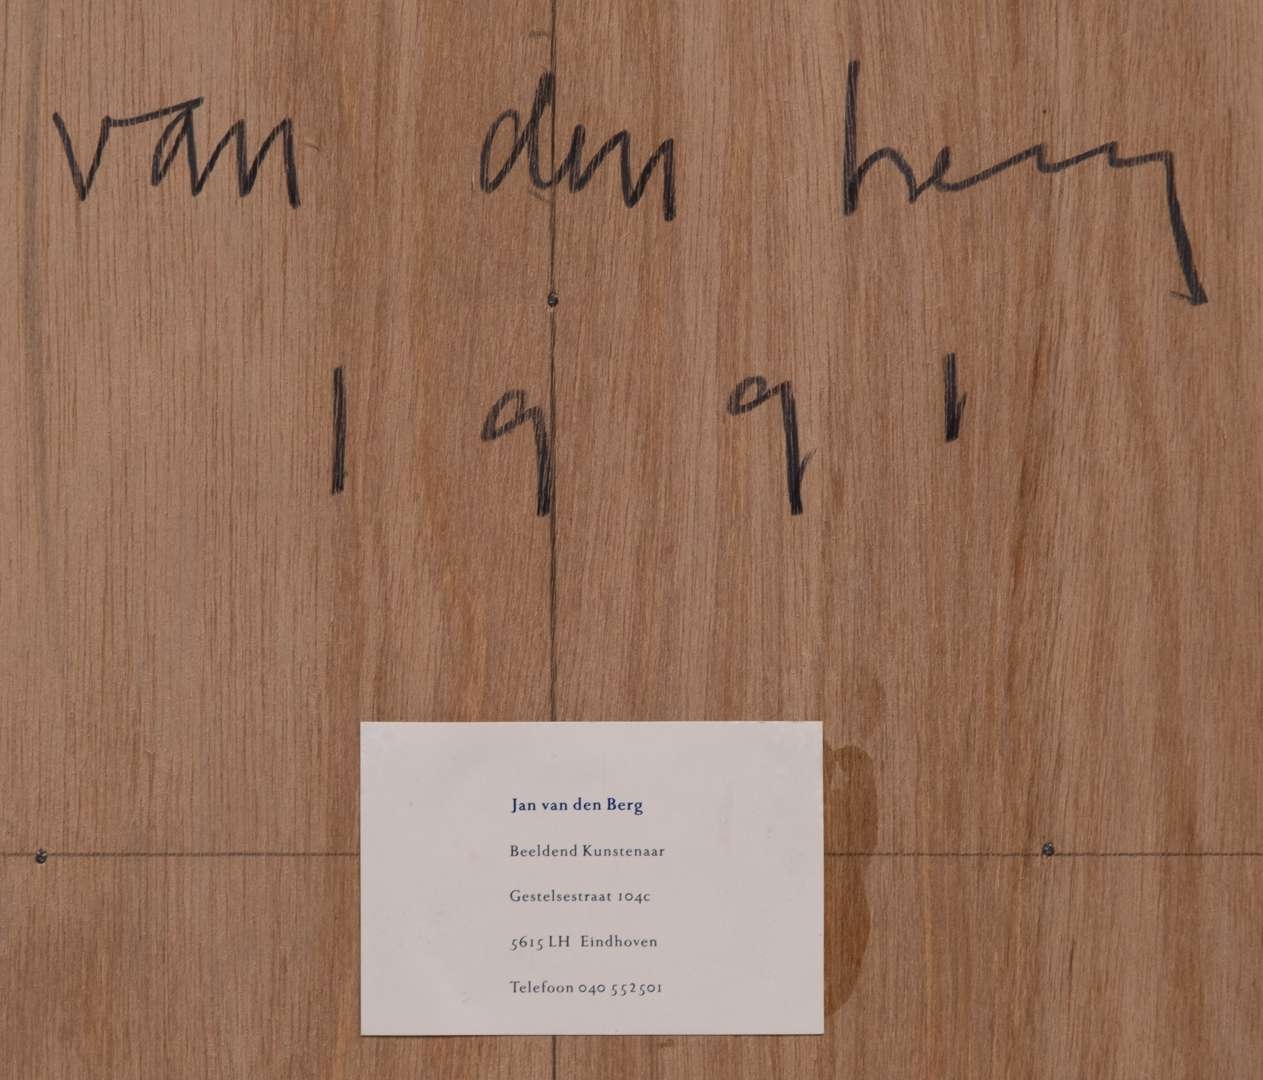 van den berg
1991
Jan van den Berg
Beeldend Kunstenaar
Gestelsestraat 104c
5615 LH Eindhoven
Telefoon 040 552501